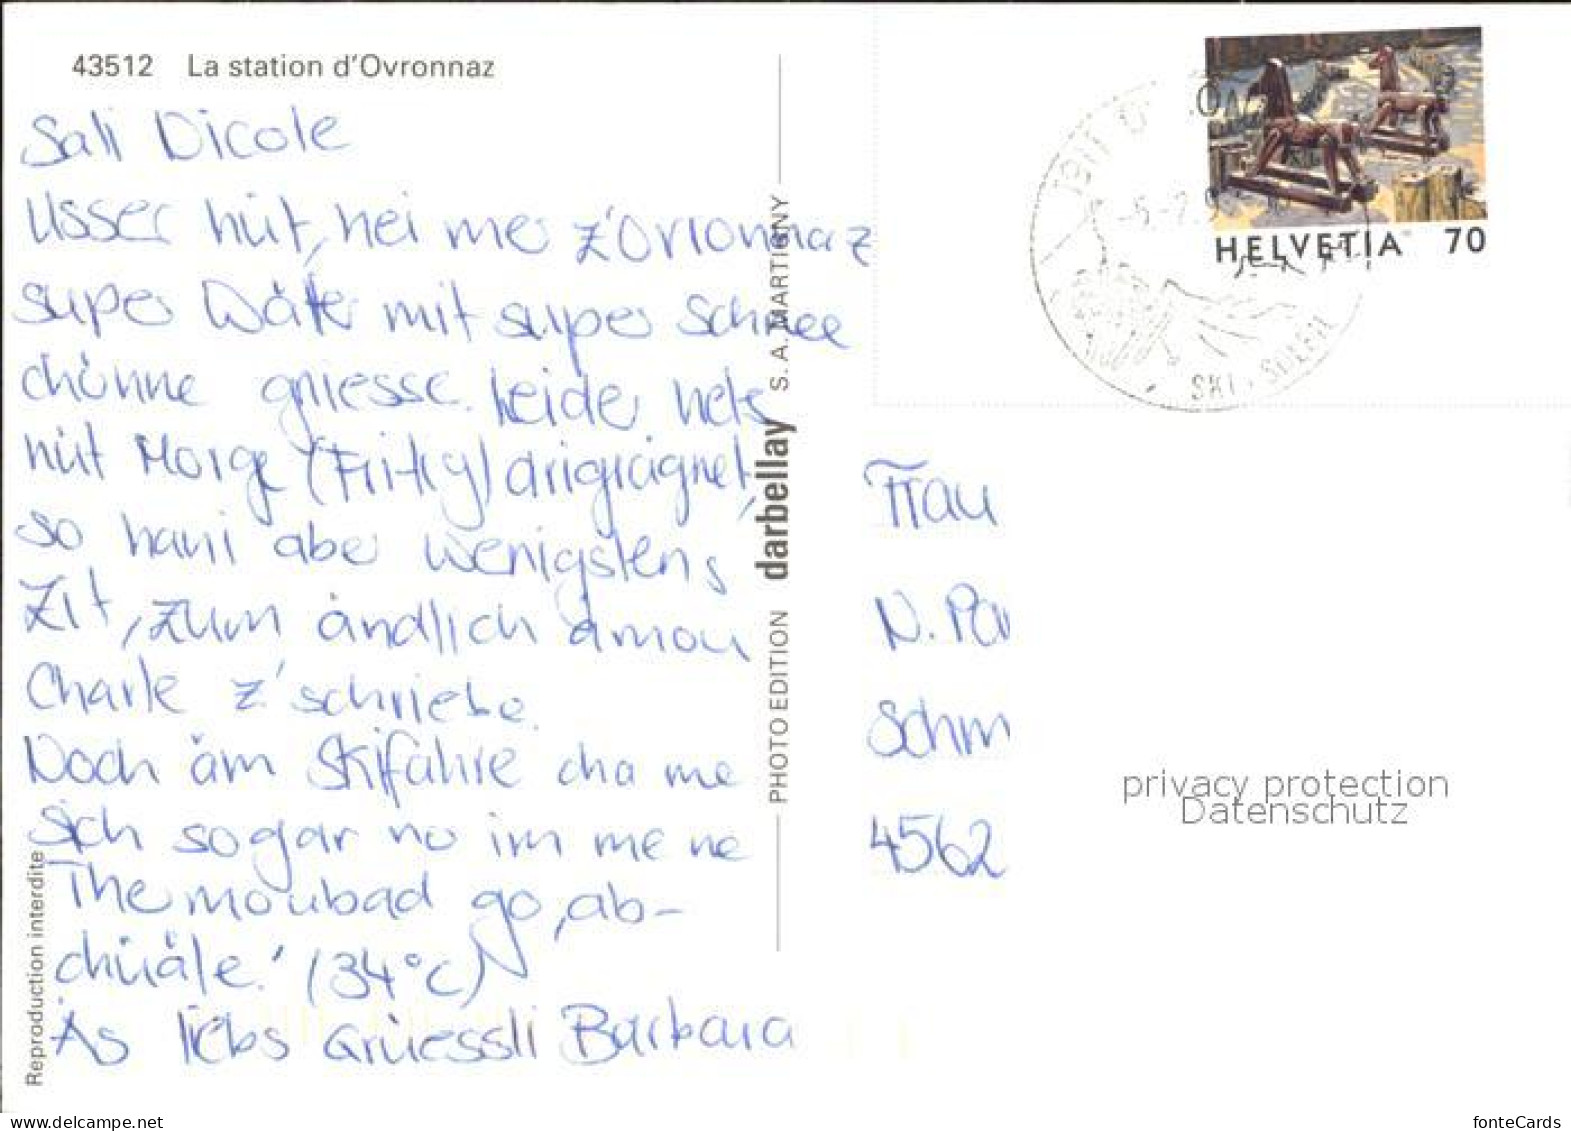 43512 La station d'Ovronnaz
Sali Nicole
Usser hüt, hei mer z'Ovronnaz
super Wätter mit super Schnee
chönne gniesse. Leider hets
hüt Morge (Fritig) drigrägnet,
so hani aber wenigstens
Zit, zum ändlich ämou
Charte z'schriebe.
Noch äm Skifahre cha me
sich sogar no im
Thermoubad go, ab-
chüäle! (34°C)
Äs liebs Grüessli Barbara
Reproduction interdite
PHOTO EDITION darbellay S. A. MARTIGNY
HELVETIA 70
1911
SKI - SOLEIL
Frau
N. Par
Schm
4562
privacy protection
Datenschutz
fonteCards